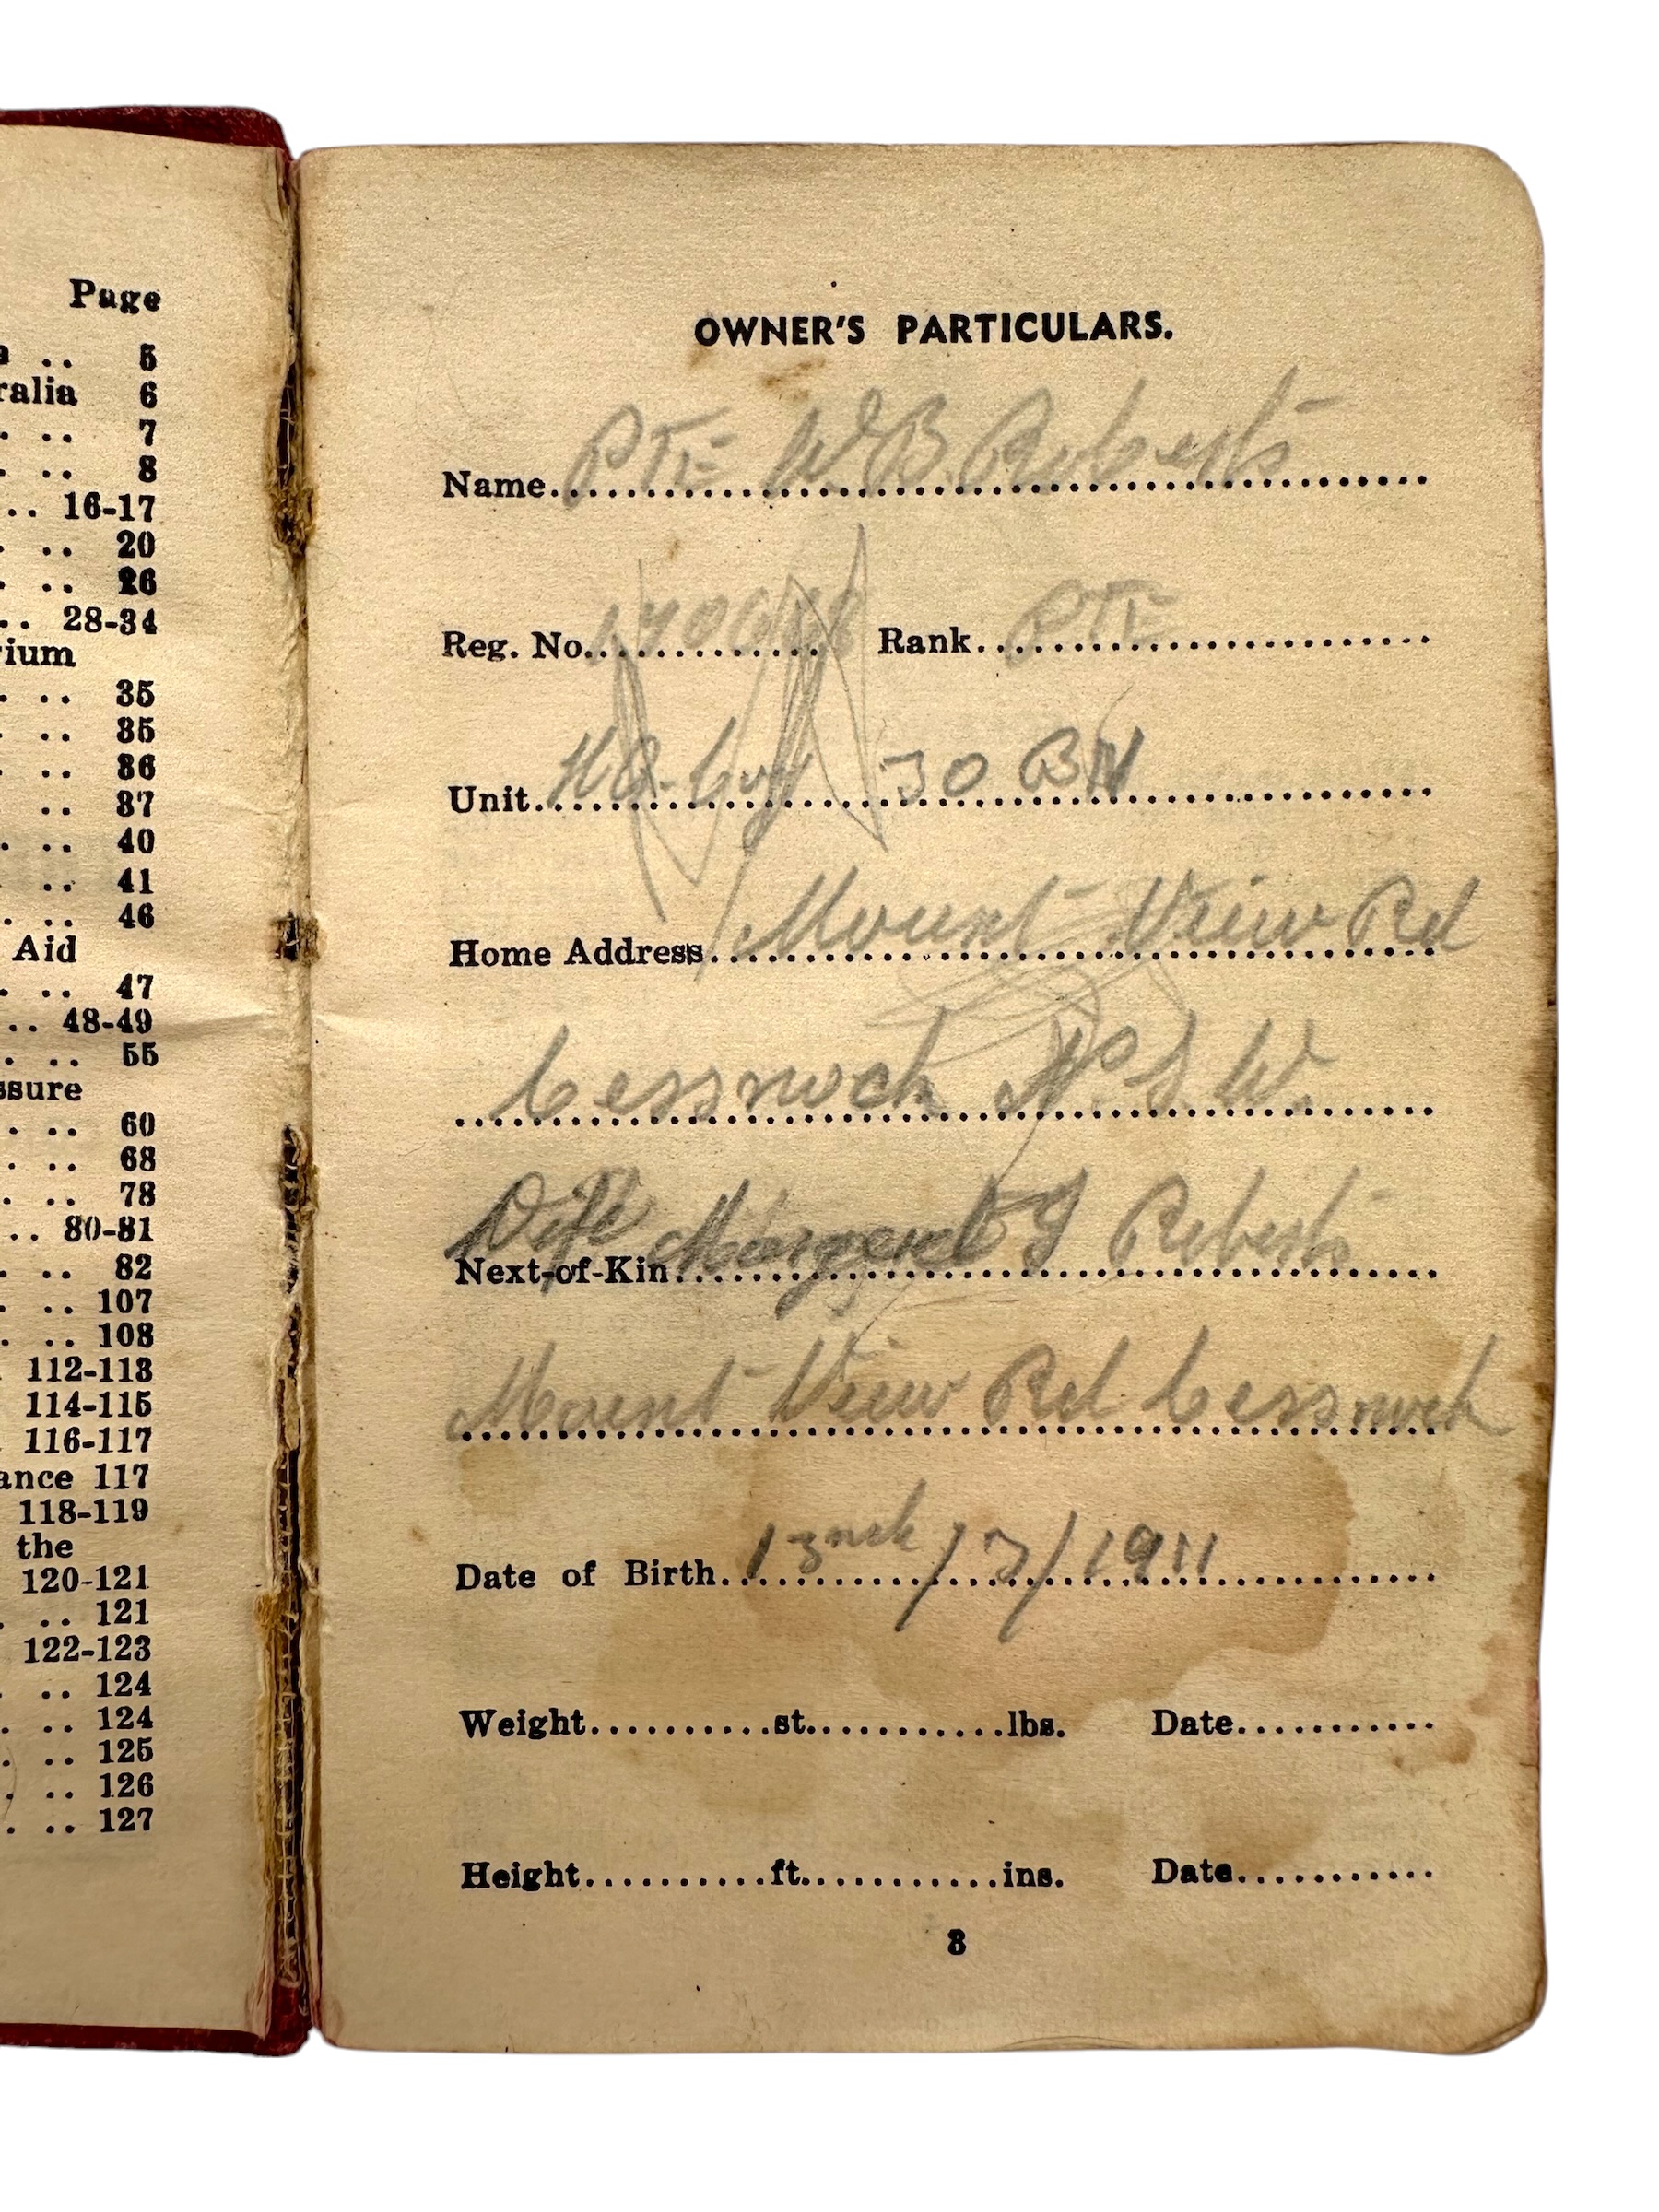 Page
.. 5
ralia 6
. .. 7
. .. 8
.. 16-17
. .. 20
. .. 26
.. 28-34
rium
. .. 35
. .. 35
. .. 36
.. 37
. .. 40
. .. 41
. .. 46
Aid
. .. 47
.. 48-49
. .. 55
ssure
. .. 60
. .. 68
. .. 78
.. 80-81
. .. 82
. .. 107
. .. 108
. 112-113
114-115
. 116-117
ance 117
118-119
the
120-121
.. 121
122-123
. .. 124
. .. 124
. .. 125
. .. 126
. .. 127
OWNER'S PARTICULARS.
Name. PTE W B Roberts
Reg. No. Rank PTE
Unit. HQ. Coy 30 BN
Home Address Mount View Rd
Cessnock N.S.W.
Next-of-Kin Margaret Roberts
Mount View Rd Cessnock
Date of Birth /1911
Weight..........st...........lbs. Date...........
Height..........ft............ins. Date...........
3